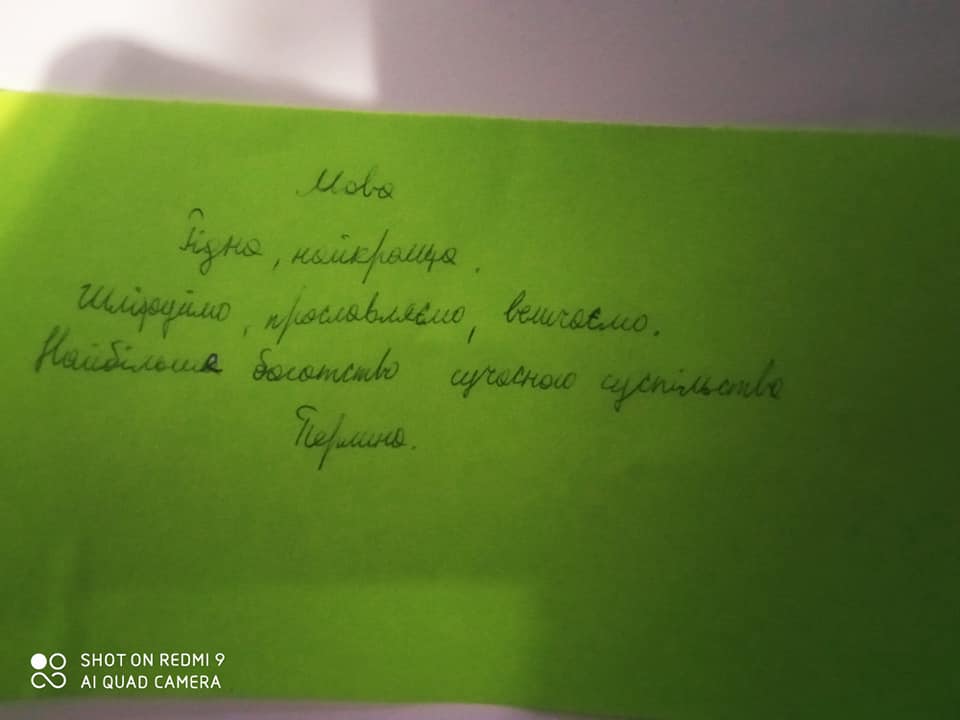 Мова
Рідна, найкраща.
Шліфуймо, прославляємо, величаємо.
Найбільше богатство сучасного суспільства
Перлина.
SHOT ON REDMI 9
AI QUAD CAMERA